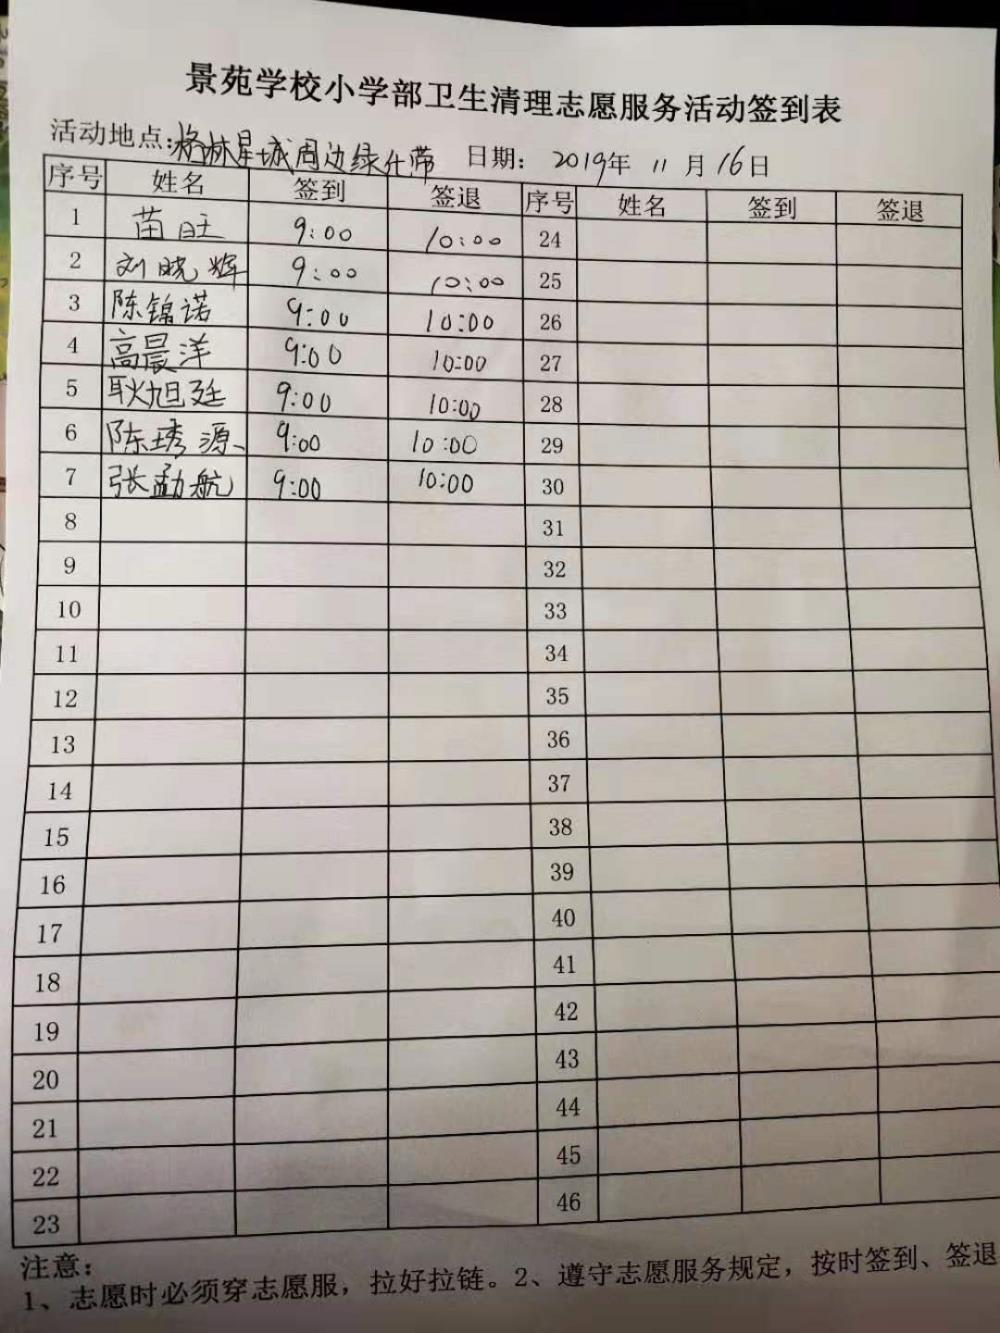 景苑学校小学部卫生清理志愿服务活动签到表
活动地点:格林星城周边绿化带 日期： 2019年 11 月 16日
序号 姓名 签到 签退 序号 姓名 签到 签退
1 苗旺 9:00 10:00 24
2 刘晓辉 9:00 10:00 25
3 陈锦诺 9:00 10:00 26
4 高晨洋 9:00 10:00 27
5 耿旭廷 9:00 10:00 28
6 陈琇源 9:00 10:00 29
7 张孟航 9:00 10:00 30
8 31
9 32
10 33
11 34
12 35
13 36
14 37
15 38
16 39
17 40
18 41
19 42
20 43
21 44
22 45
23 46
注意：
1、志愿时必须穿志愿服，拉好拉链。2、遵守志愿服务规定，按时签到、签退